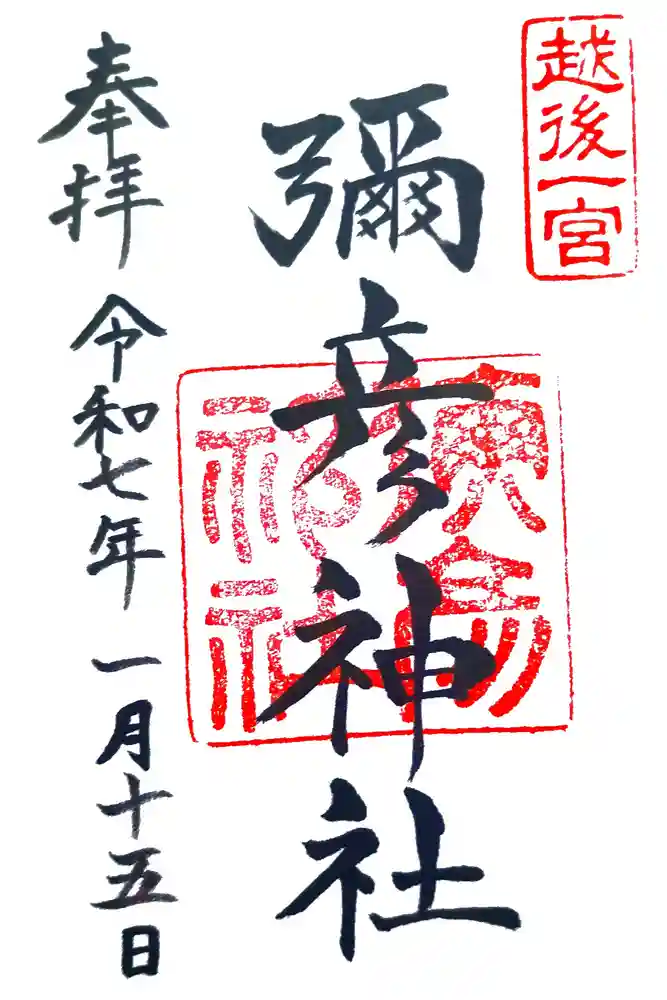 越後一宮
彌彦神社
奉拝
令和七年
一月十五日